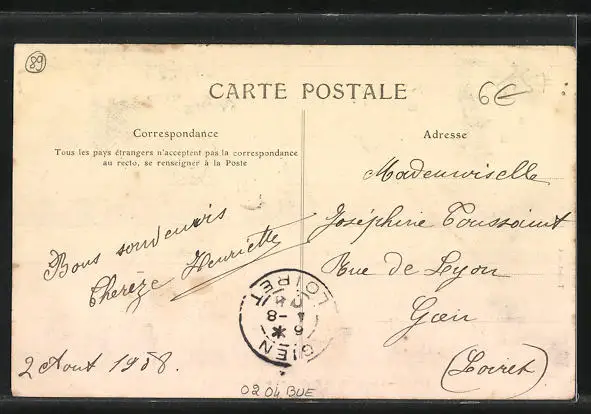 89
CARTE POSTALE
6€
Correspondance
Tous les pays étrangers n'acceptent pas la correspondance
au recto, se renseigner à la Poste
Adresse
Bons souvenirs
Therèze Henriette
2 Aout 1908.
Mademoiselle
Joséphine Toussaint
Rue de Lyon
Gien
(Loiret)
GIEN
LOIRET
6 *
4 -8
0204BUE